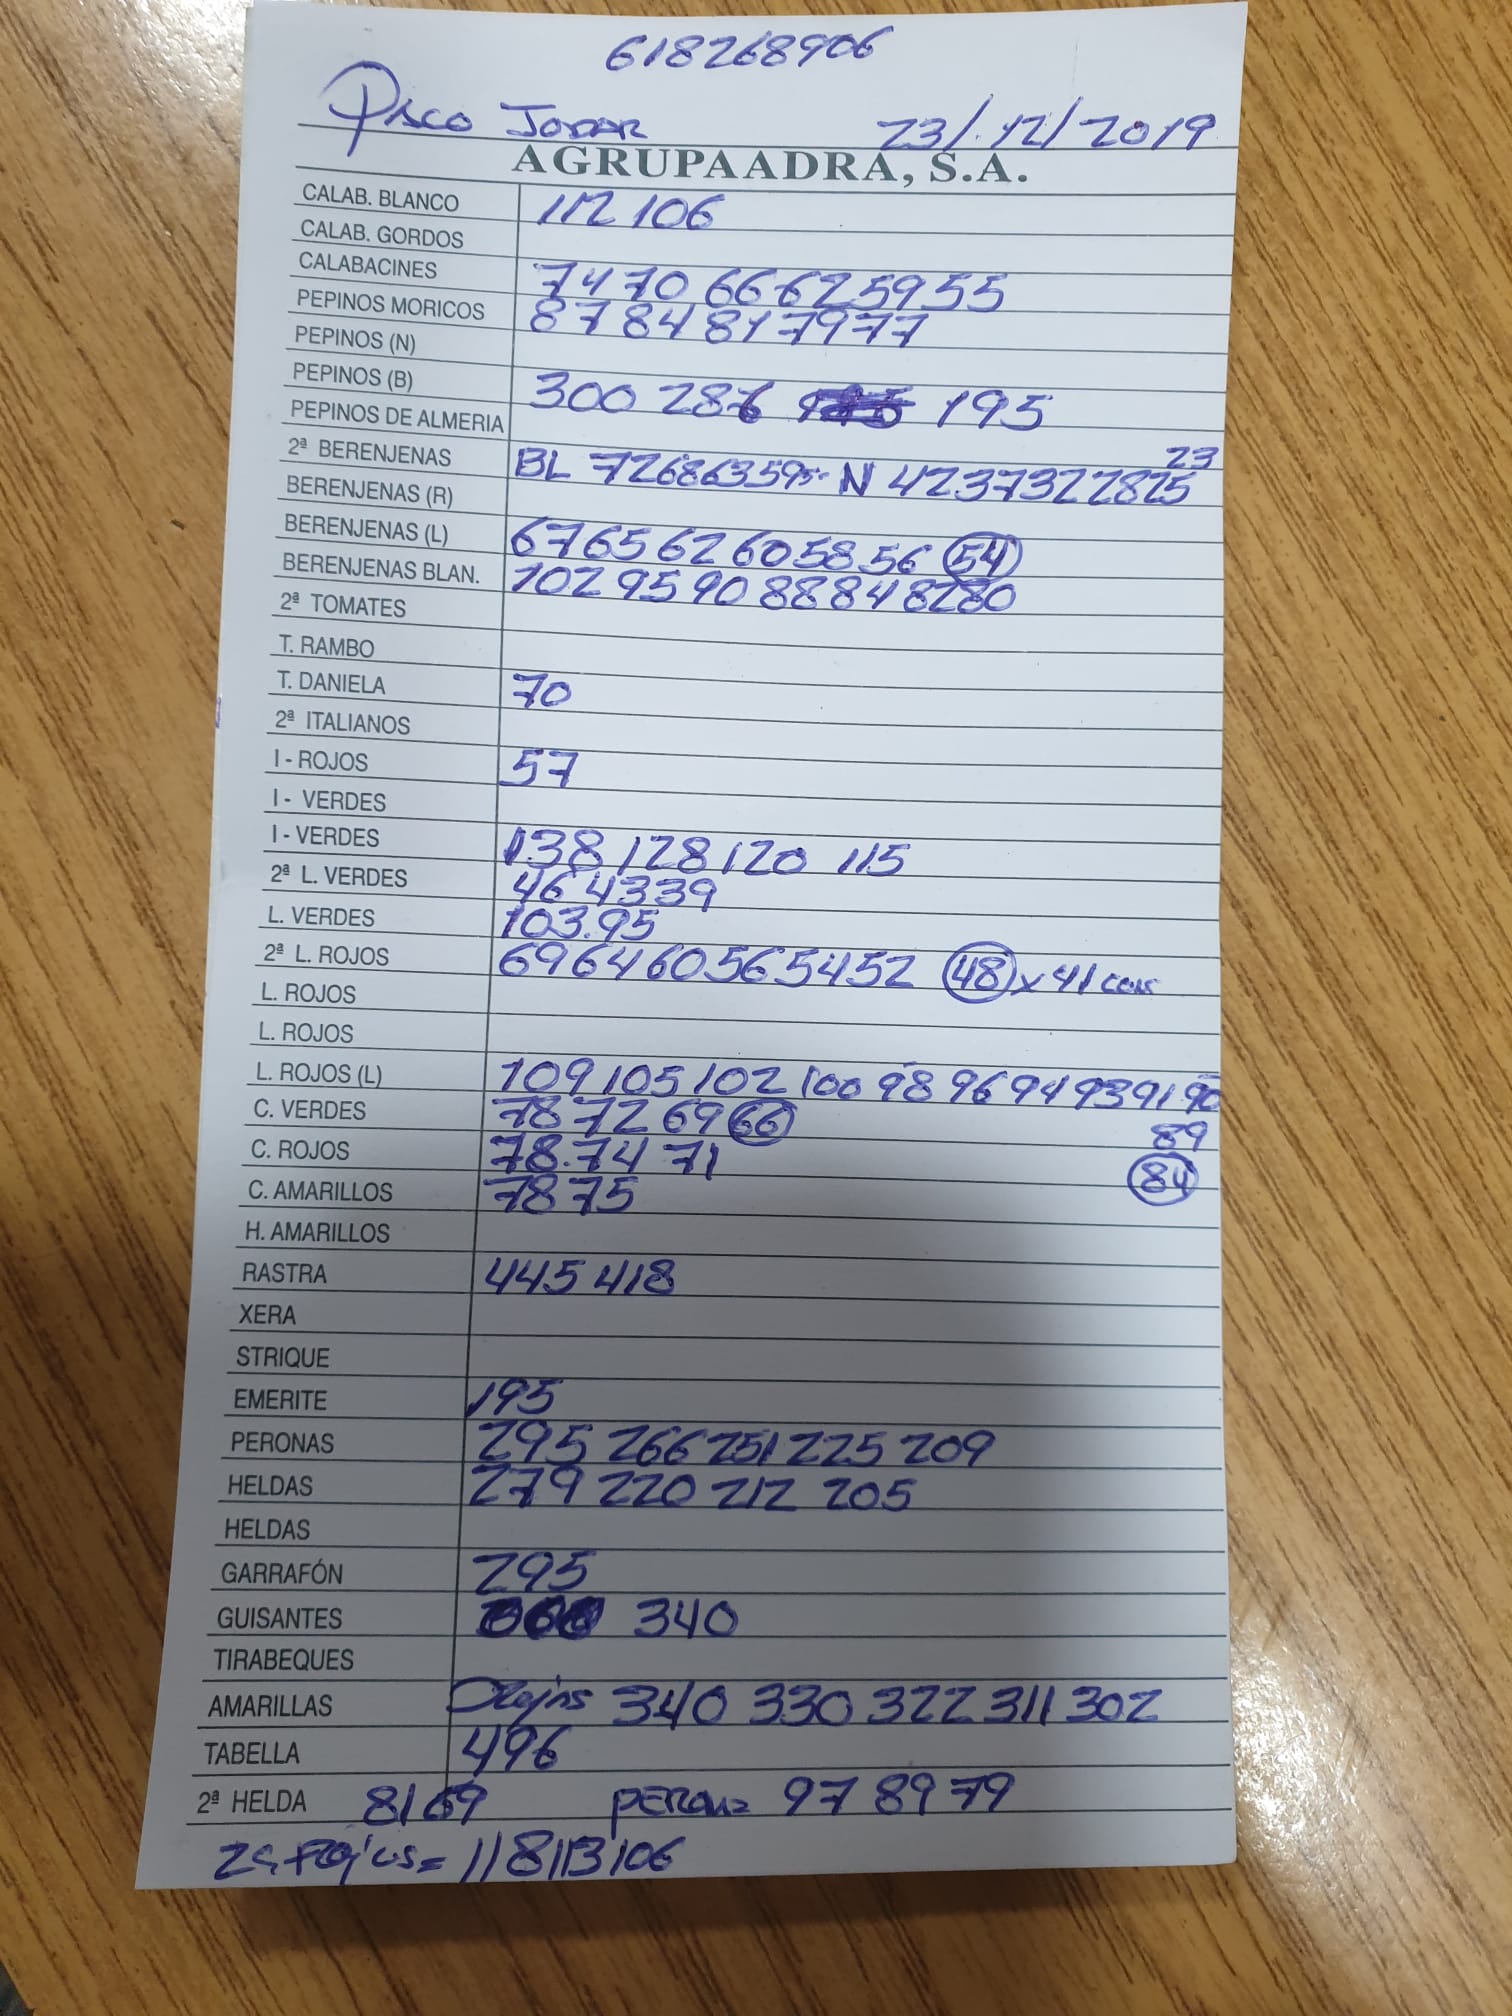 618268906
Paco JODAR 23/12/2019
AGRUPAADRA, S.A.
CALAB. BLANCO 112 106
CALAB. GORDOS
CALABACINES 74 70 66 62 59 55
PEPINOS MORICOS 87 84 81 79 77
PEPINOS (N)
PEPINOS (B) 300 286 195
PEPINOS DE ALMERIA
23
2ª BERENJENAS BL 72 68 63 59 N 42 37 32 28 25
BERENJENAS (R)
BERENJENAS (L) 67 65 62 60 58 56 54
BERENJENAS BLAN. 102 95 90 88 84 82 80
2ª TOMATES
T. RAMBO
T. DANIELA 70
2ª ITALIANOS
I - ROJOS 57
I - VERDES
I - VERDES 138 128 120 115
2ª L. VERDES 46 43 39
L. VERDES 103.95
2ª L. ROJOS 69 64 60 56 54 52 48 x 41
L. ROJOS
L. ROJOS
L. ROJOS (L) 109 105 102 100 98 96 94 93 91 90
C. VERDES 78 72 69 66 89
C. ROJOS 78.74 71 84
C. AMARILLOS 78 75
H. AMARILLOS
RASTRA 445 418
XERA
STRIQUE
EMERITE 195
PERONAS 295 266 251 225 209
HELDAS 279 220 212 205
HELDAS
GARRAFÓN 295
GUISANTES 340
TIRABEQUES
AMARILLAS 340 330 322 311 302
TABELLA 496
2ª HELDA 81 69 PERONA 97 89 79
118 113 106